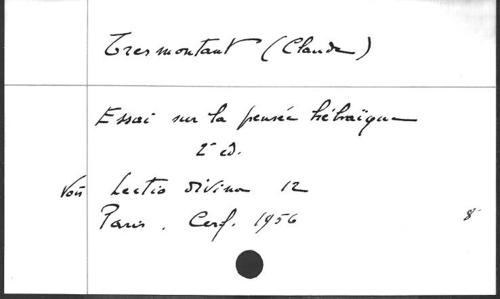 Tresmontant (Claude)
Essai sur la pensée hébraïque
2e éd.
Voir Lectio divina 12
Paris. Cerf. 1956
8°